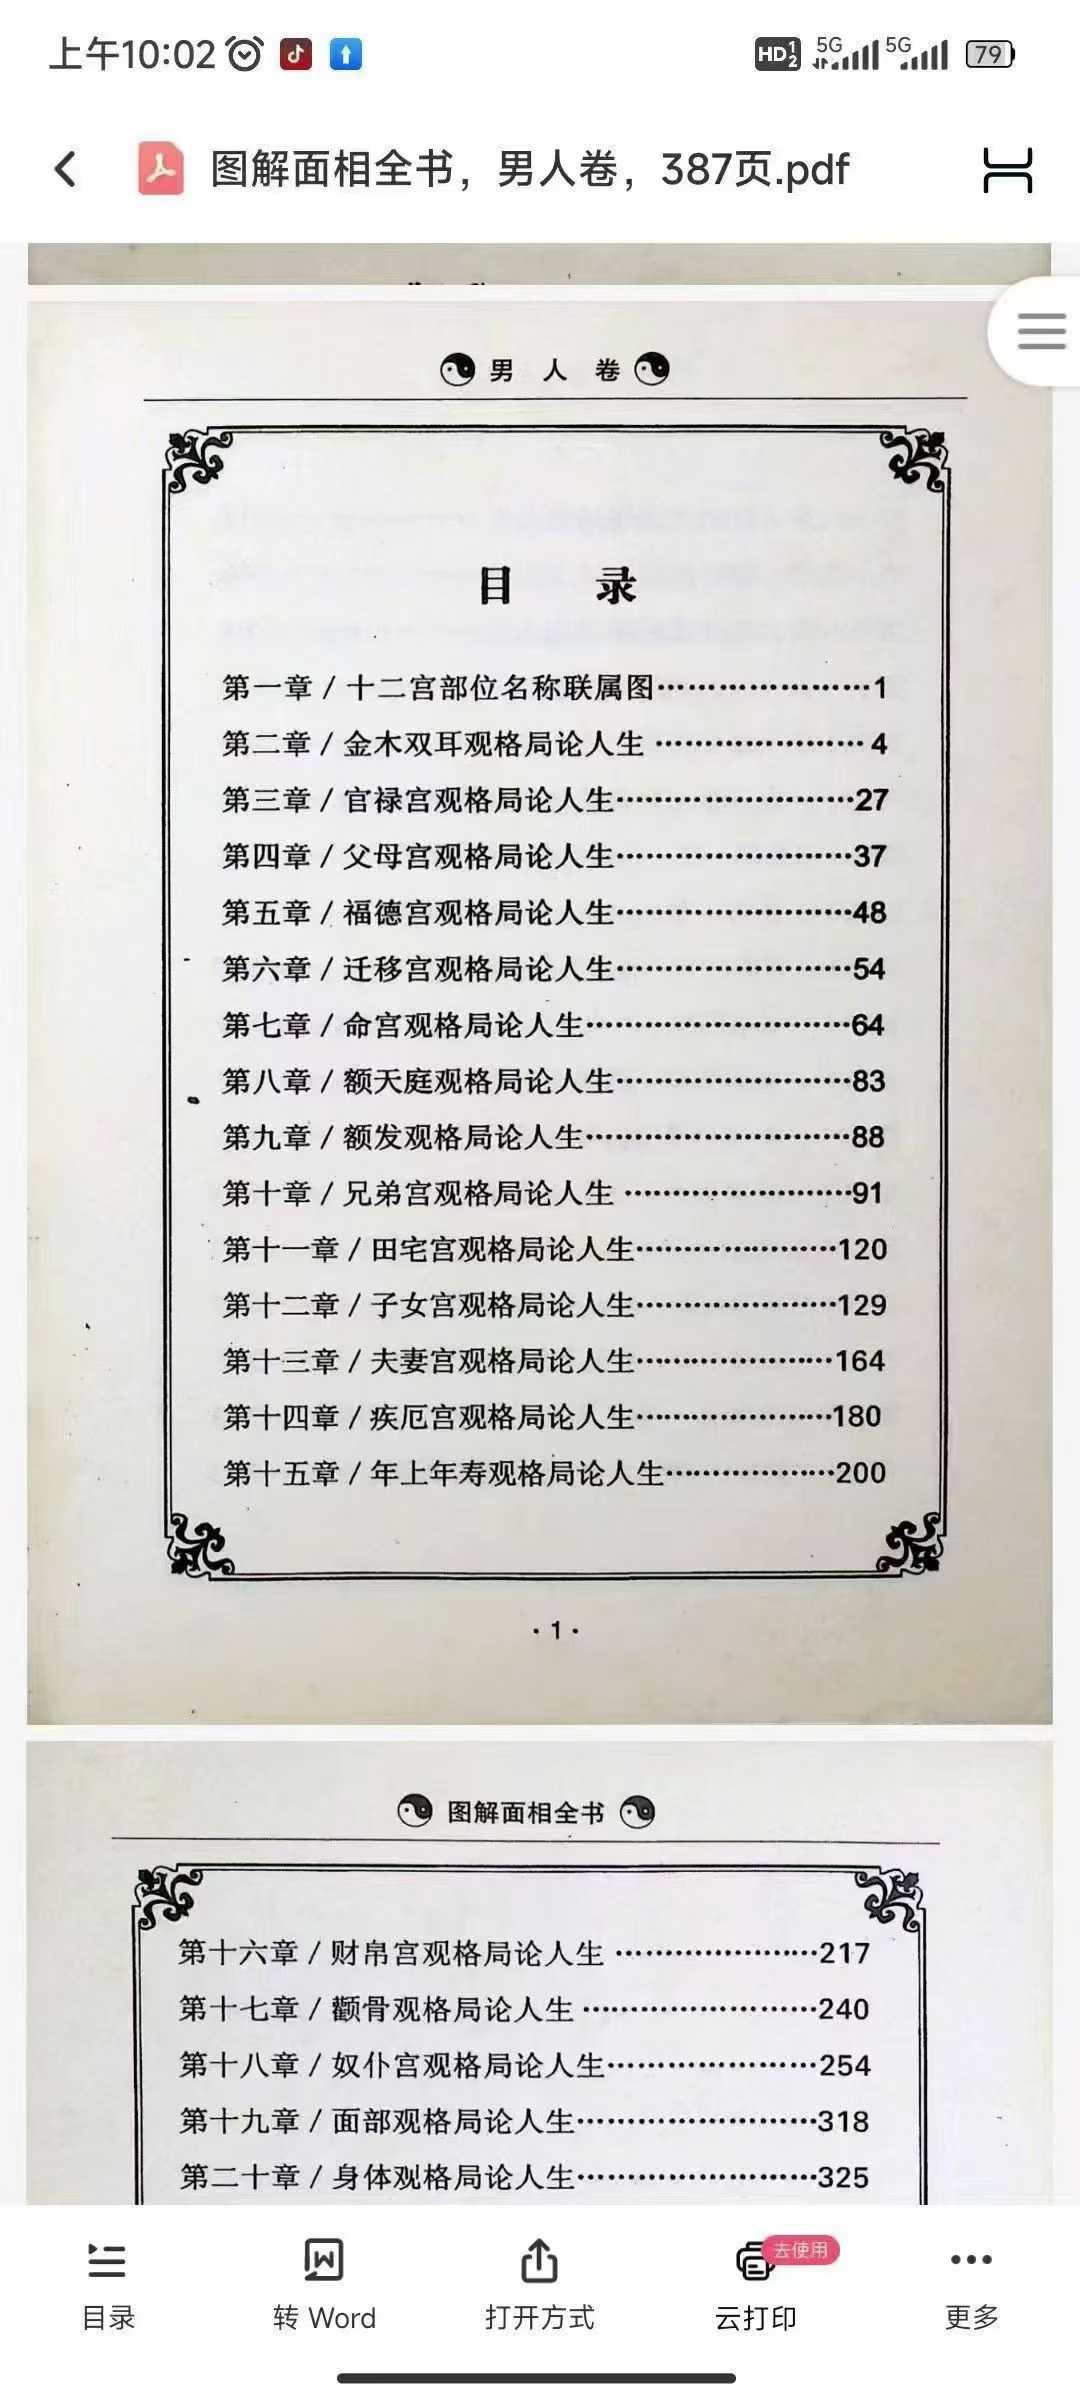 上午10:02
HD 1 2 5G 5G 79
图解面相全书，男人卷，387页.pdf
男 人 卷
目 录
第一章 / 十二宫部位名称联属图…………………1
第二章 / 金木双耳观格局论人生……………………4
第三章 / 官禄宫观格局论人生……………………27
第四章 / 父母宫观格局论人生……………………37
第五章 / 福德宫观格局论人生……………………48
第六章 / 迁移宫观格局论人生……………………54
第七章 / 命宫观格局论人生………………………64
第八章 / 额天庭观格局论人生……………………83
第九章 / 额发观格局论人生………………………88
第十章 / 兄弟宫观格局论人生……………………91
第十一章 / 田宅宫观格局论人生…………………120
第十二章 / 子女宫观格局论人生…………………129
第十三章 / 夫妻宫观格局论人生…………………164
第十四章 / 疾厄宫观格局论人生…………………180
第十五章 / 年上年寿观格局论人生………………200
·1·
图解面相全书
第十六章 / 财帛宫观格局论人生…………………217
第十七章 / 颧骨观格局论人生……………………240
第十八章 / 奴仆宫观格局论人生…………………254
第十九章 / 面部观格局论人生……………………318
第二十章 / 身体观格局论人生……………………325
去使用
目录 转 Word 打开方式 云打印 更多